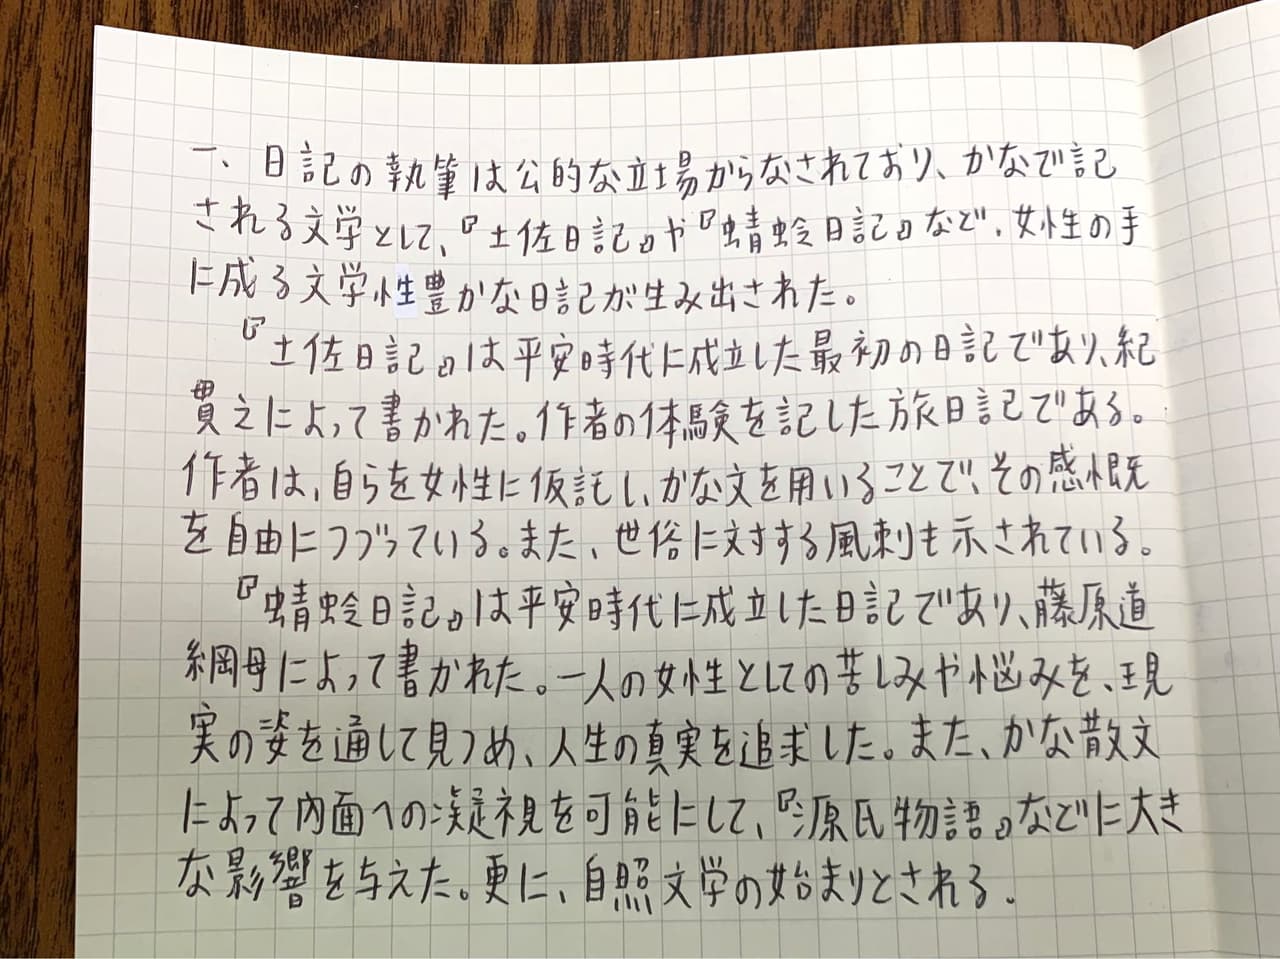 一、日記の執筆は公的な立場からなされており、かなで記
される文学として、『土佐日記』や『蜻蛉日記』など、女性の手
に成る文学性豊かな日記が生み出された。
『土佐日記』は平安時代に成立した最初の日記であり、紀
貫之によって書かれた。作者の体験を記した旅日記である。
作者は、自らを女性に仮託し、かな文を用いることで、その感慨
を自由につづっている。また、世俗に対する風刺も示されている。
『蜻蛉日記』は平安時代に成立した日記であり、藤原道
綱母によって書かれた。一人の女性としての苦しみや悩みを、現
実の姿を通して見つめ、人生の真実を追求した。また、かな散文
によって内面への凝視を可能にして、『源氏物語』などに大き
な影響を与えた。更に、自照文学の始まりとされる。